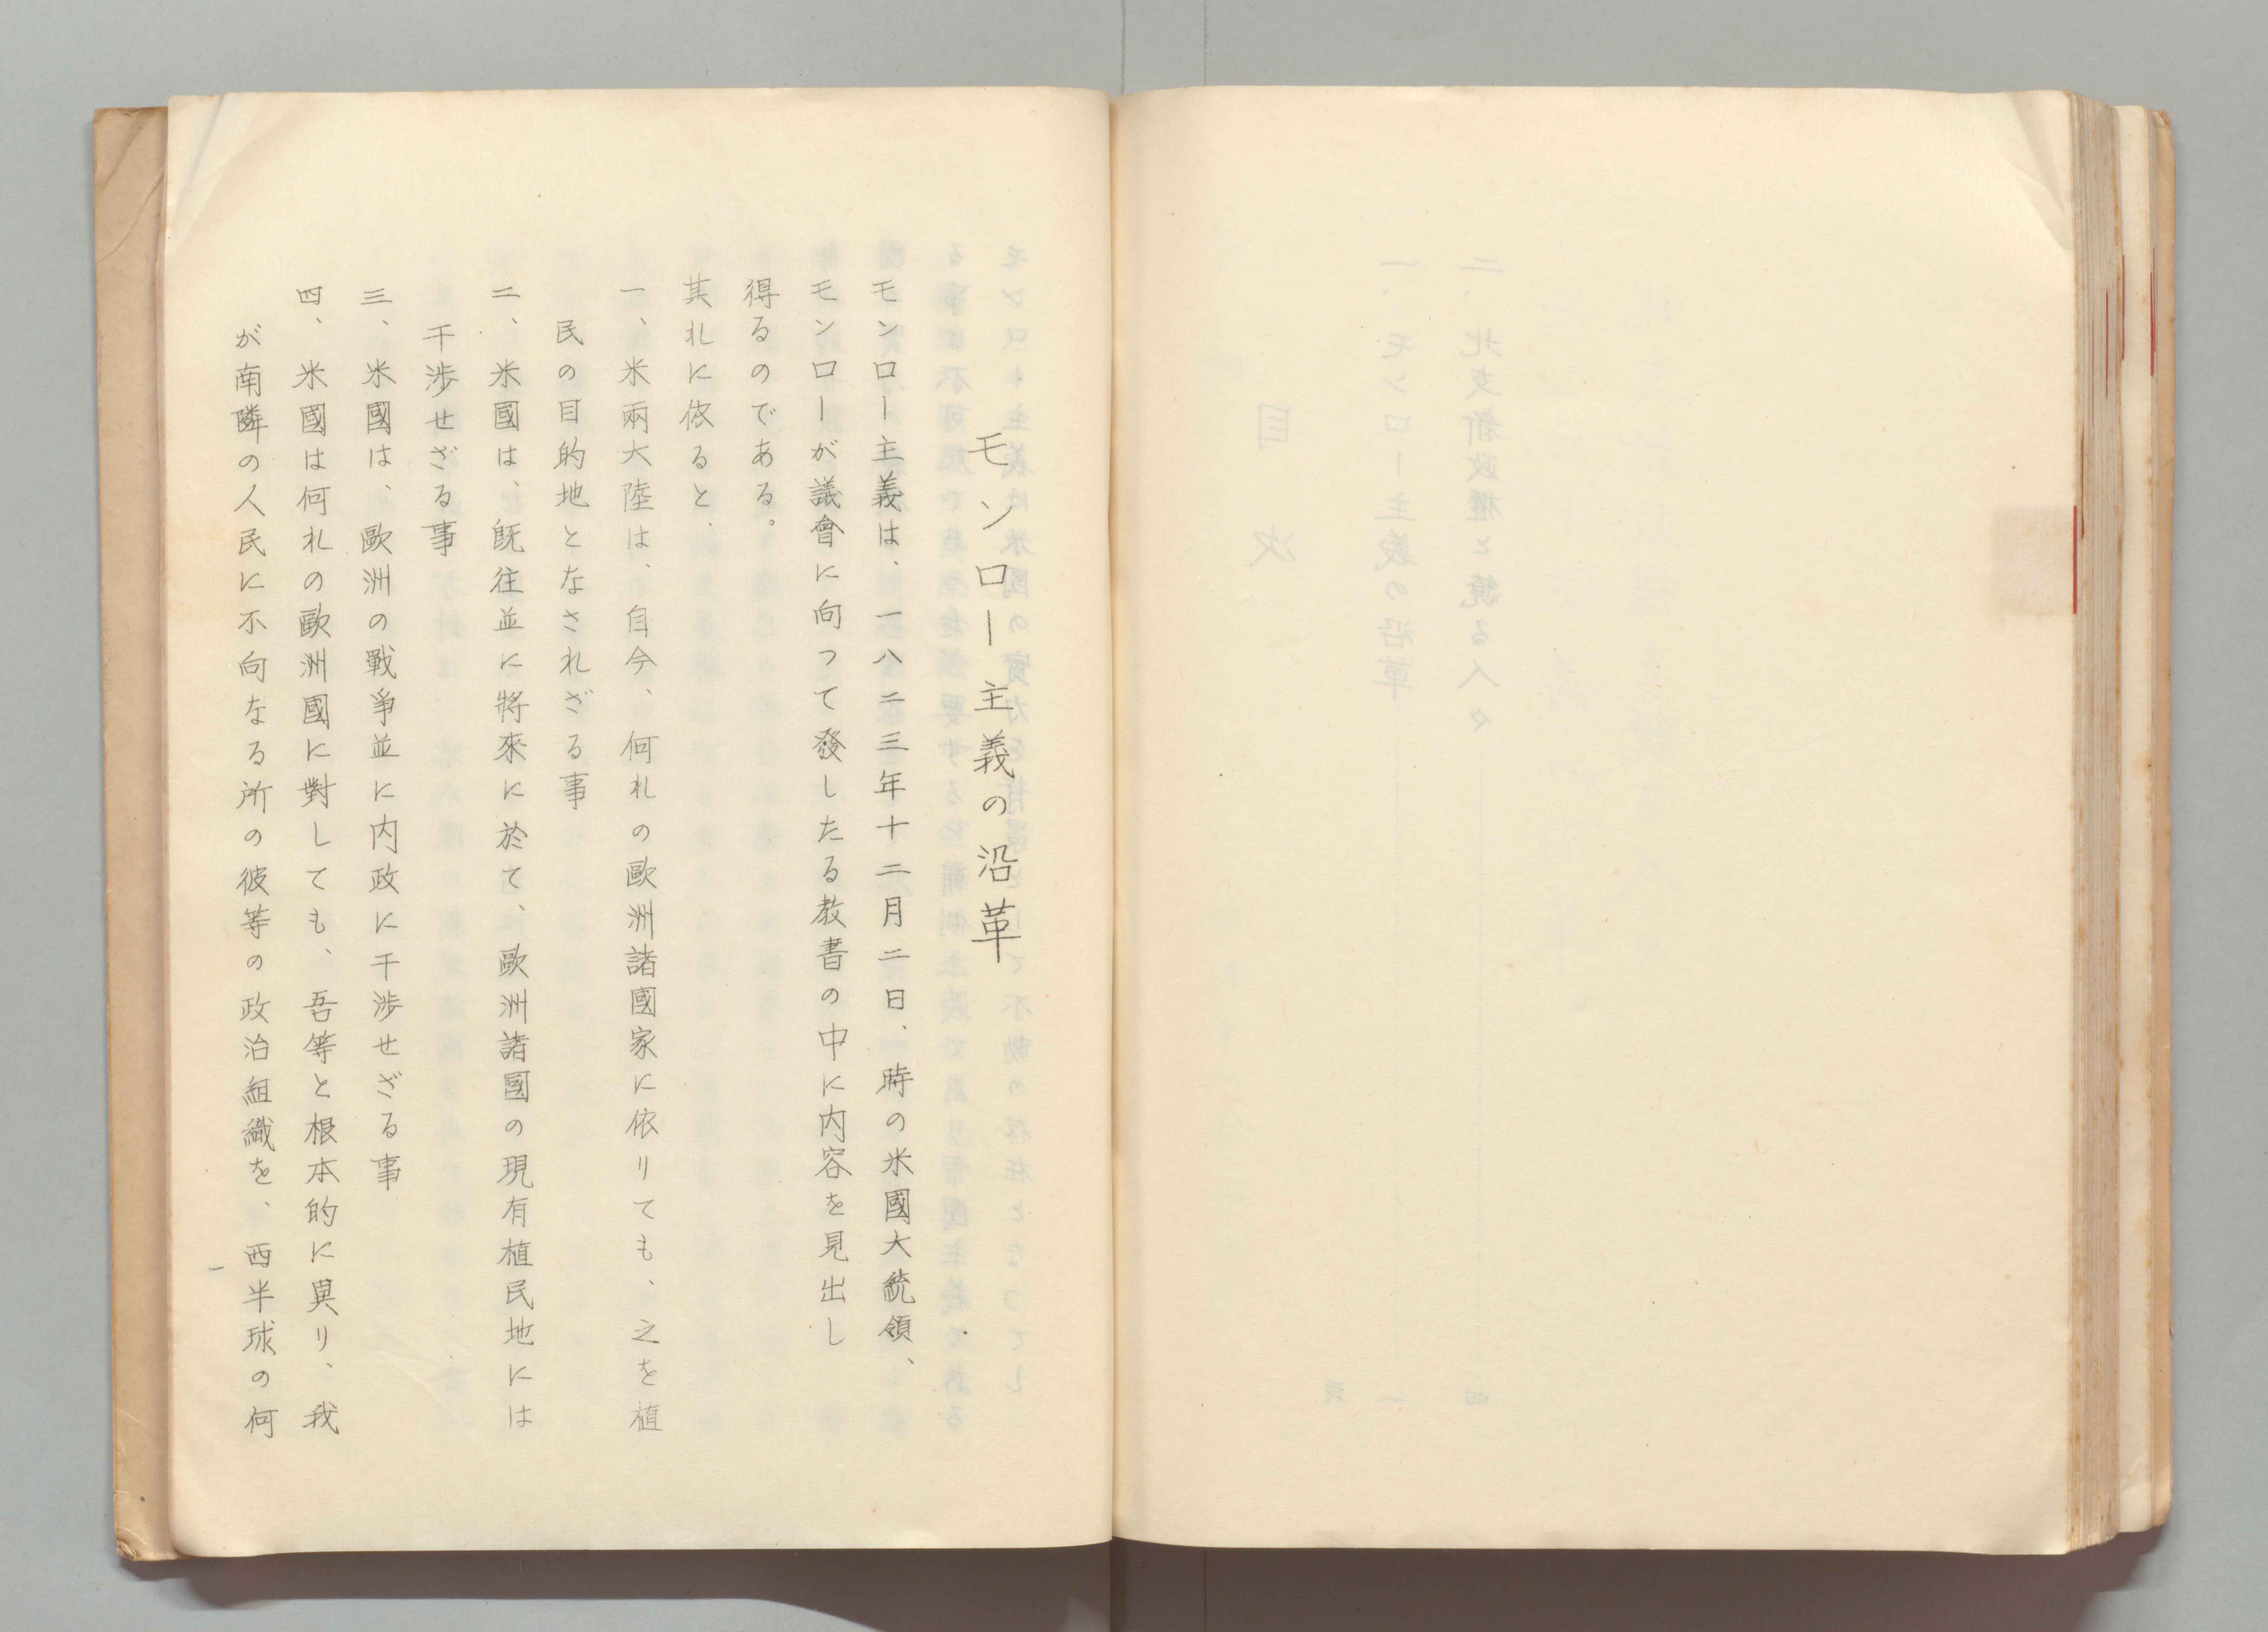 モンロー主義の沿革
モンロー主義は、一八二三年十二月二日、時の米國大統領、
モンローが議會に向つて發したる教書の中に内容を見出し
得るのである。
其れに依ると、
一、米兩大陸は、自今、何れの歐洲諸國家に依りても、之を植
民の目的地となされざる事
二、米國は、既往並に將來に於て、歐洲諸國の現有植民地には
干渉せざる事
三、米國は、歐洲の戰爭並に内政に干渉せざる事
四、米國は何れの歐洲國に對しても、吾等と根本的に異り、我
が南隣の人民に不向なる所の彼等の政治組織を、西半球の何
一